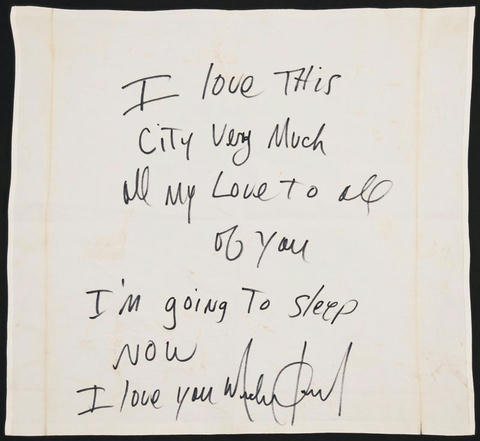 I love THis
City Very Much
all My Love To all
of You
I'm going To sleep
NOW
I love you